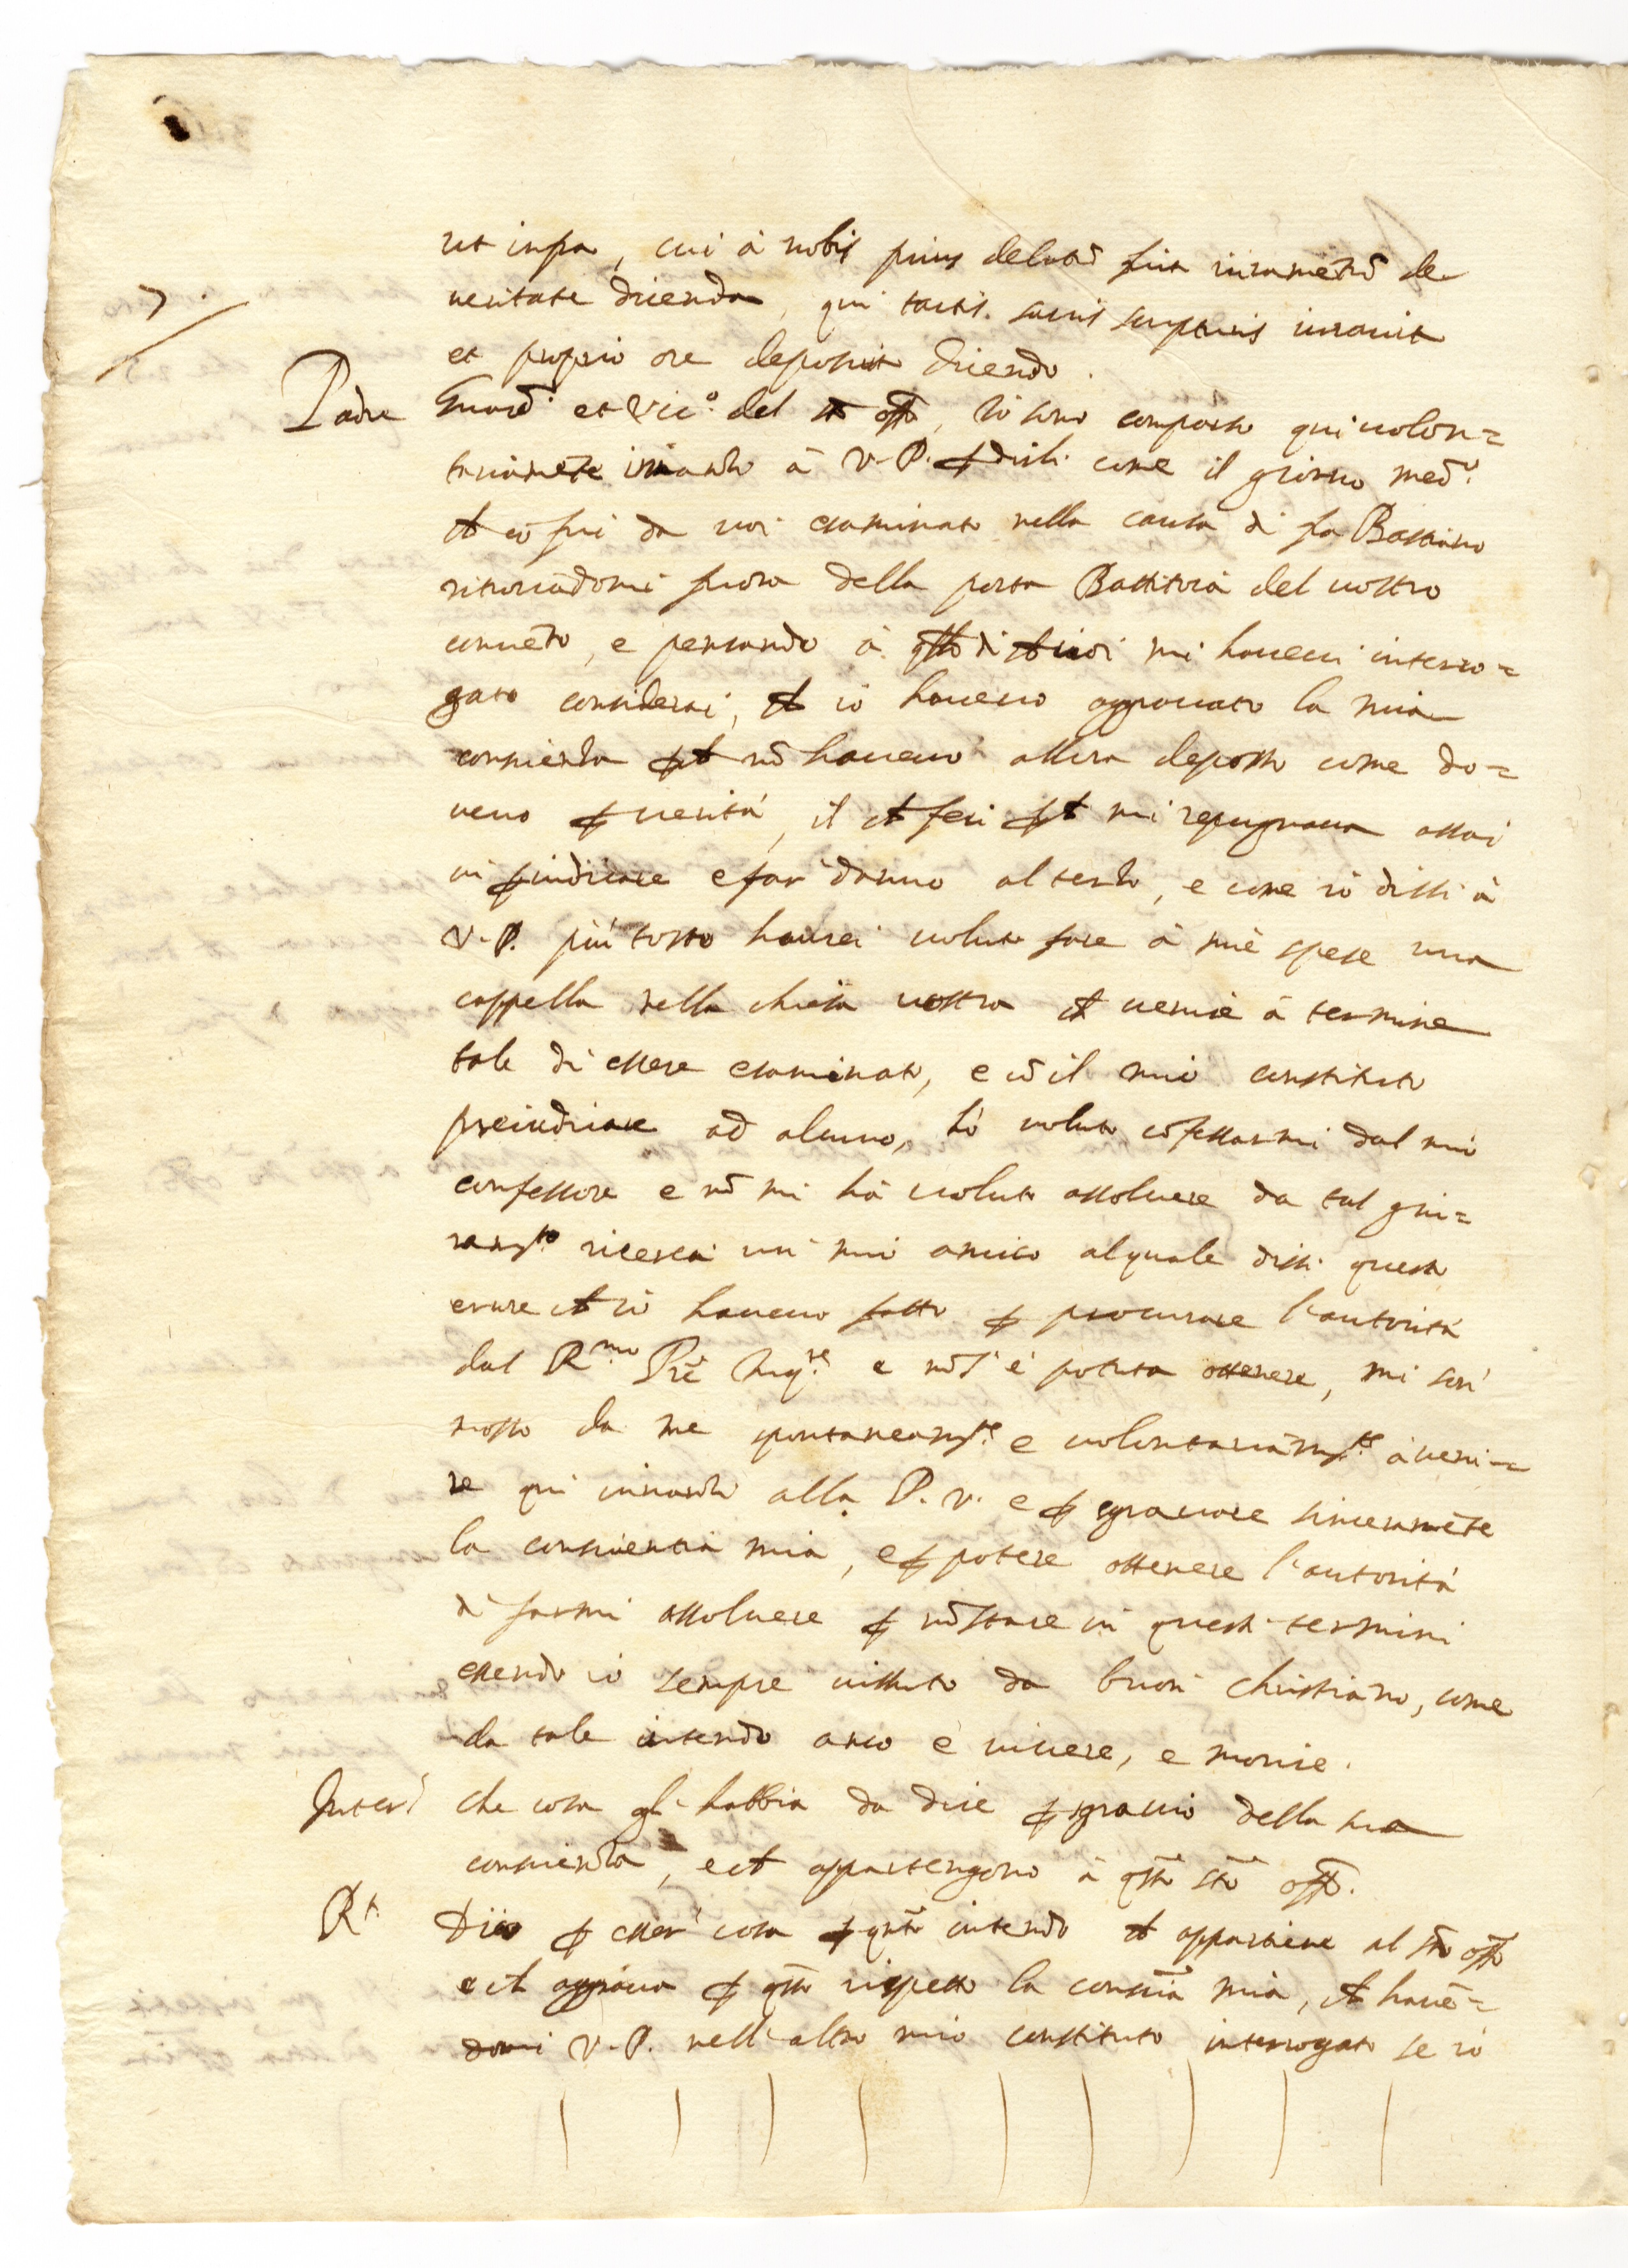 7.
ut infra, cui à nobis prius delatũ fuit iuramẽtũ de
ueritate dicenda, qui tactis. sacris scripturis iurauit
et proprio ore deposuit dicendo.
Padre Guardᵒ. et Vicº. del sᵗᵒ offᵒ, io sono comparso qui uolon=
tariamẽte inãnti à V. P. p dirli come il giorno medᵒ.
ch io fui da uoi esaminato nella causa di fra Bastiano
ritrouãdomi fuora della porta Battitora del uostro
conuẽto, e pensando à qᵗᵒ di ch uoi mi haueui interro=
gato considerai, ch io haueuo aggrauato la mia
conscienza p ch nõ haueuo allora deposto come do=
ueuo p uerità, il ch feci p ch mi repugnaua assai
in p iudicare e far danno al terzo, e come io dissi à
V. P. più tosto haurei uoluto fare à mie spese una
cappella nella chiesa uostra ch uenire à termine
tale di essere esaminato, e cõ il mio constituto
preiudicare ad alcuno, hò uoluto cõfessarmi dal mio
confessore e nõ mi hà uoluto assoluere da tal giu=
ramᵗᵒ. ricercai un mio amico al quale dissi questo
errore ch io haueuo fatto p procurare l'autorità
dal Rᵐᵒ Prẽ Inqʳᵉ. e nõ s'è potuta ottenere, mi son'
mosso da me spontaneamᵗᵉ. e uolontariamᵗᵉ. à ueni=
re qui innanti alla P. V. e p sgrauare sinceramẽte
la conscientia mia, e p potere ottenere l'autorità
di farmi assoluere p nõ stare in questi termini
essendo io sempre uissuto da buon christiano, come
da tale intendo anco è uiuere, e morire.
Interˢ che cosa gli habbia da dire p sgrauio della sua
conscienza, e ch appartengono à qᵗᵒ stõ offᵒ.
Rᵗ. Dico p esser' cosa p qᵗᵒ intendo ch appartiene al stõ offᵒ
e ch aggraua p qᵗᵒ rispetto la consciã mia, ch hauẽ=
domi V. P. nell'altro mio constituto interrogato se io